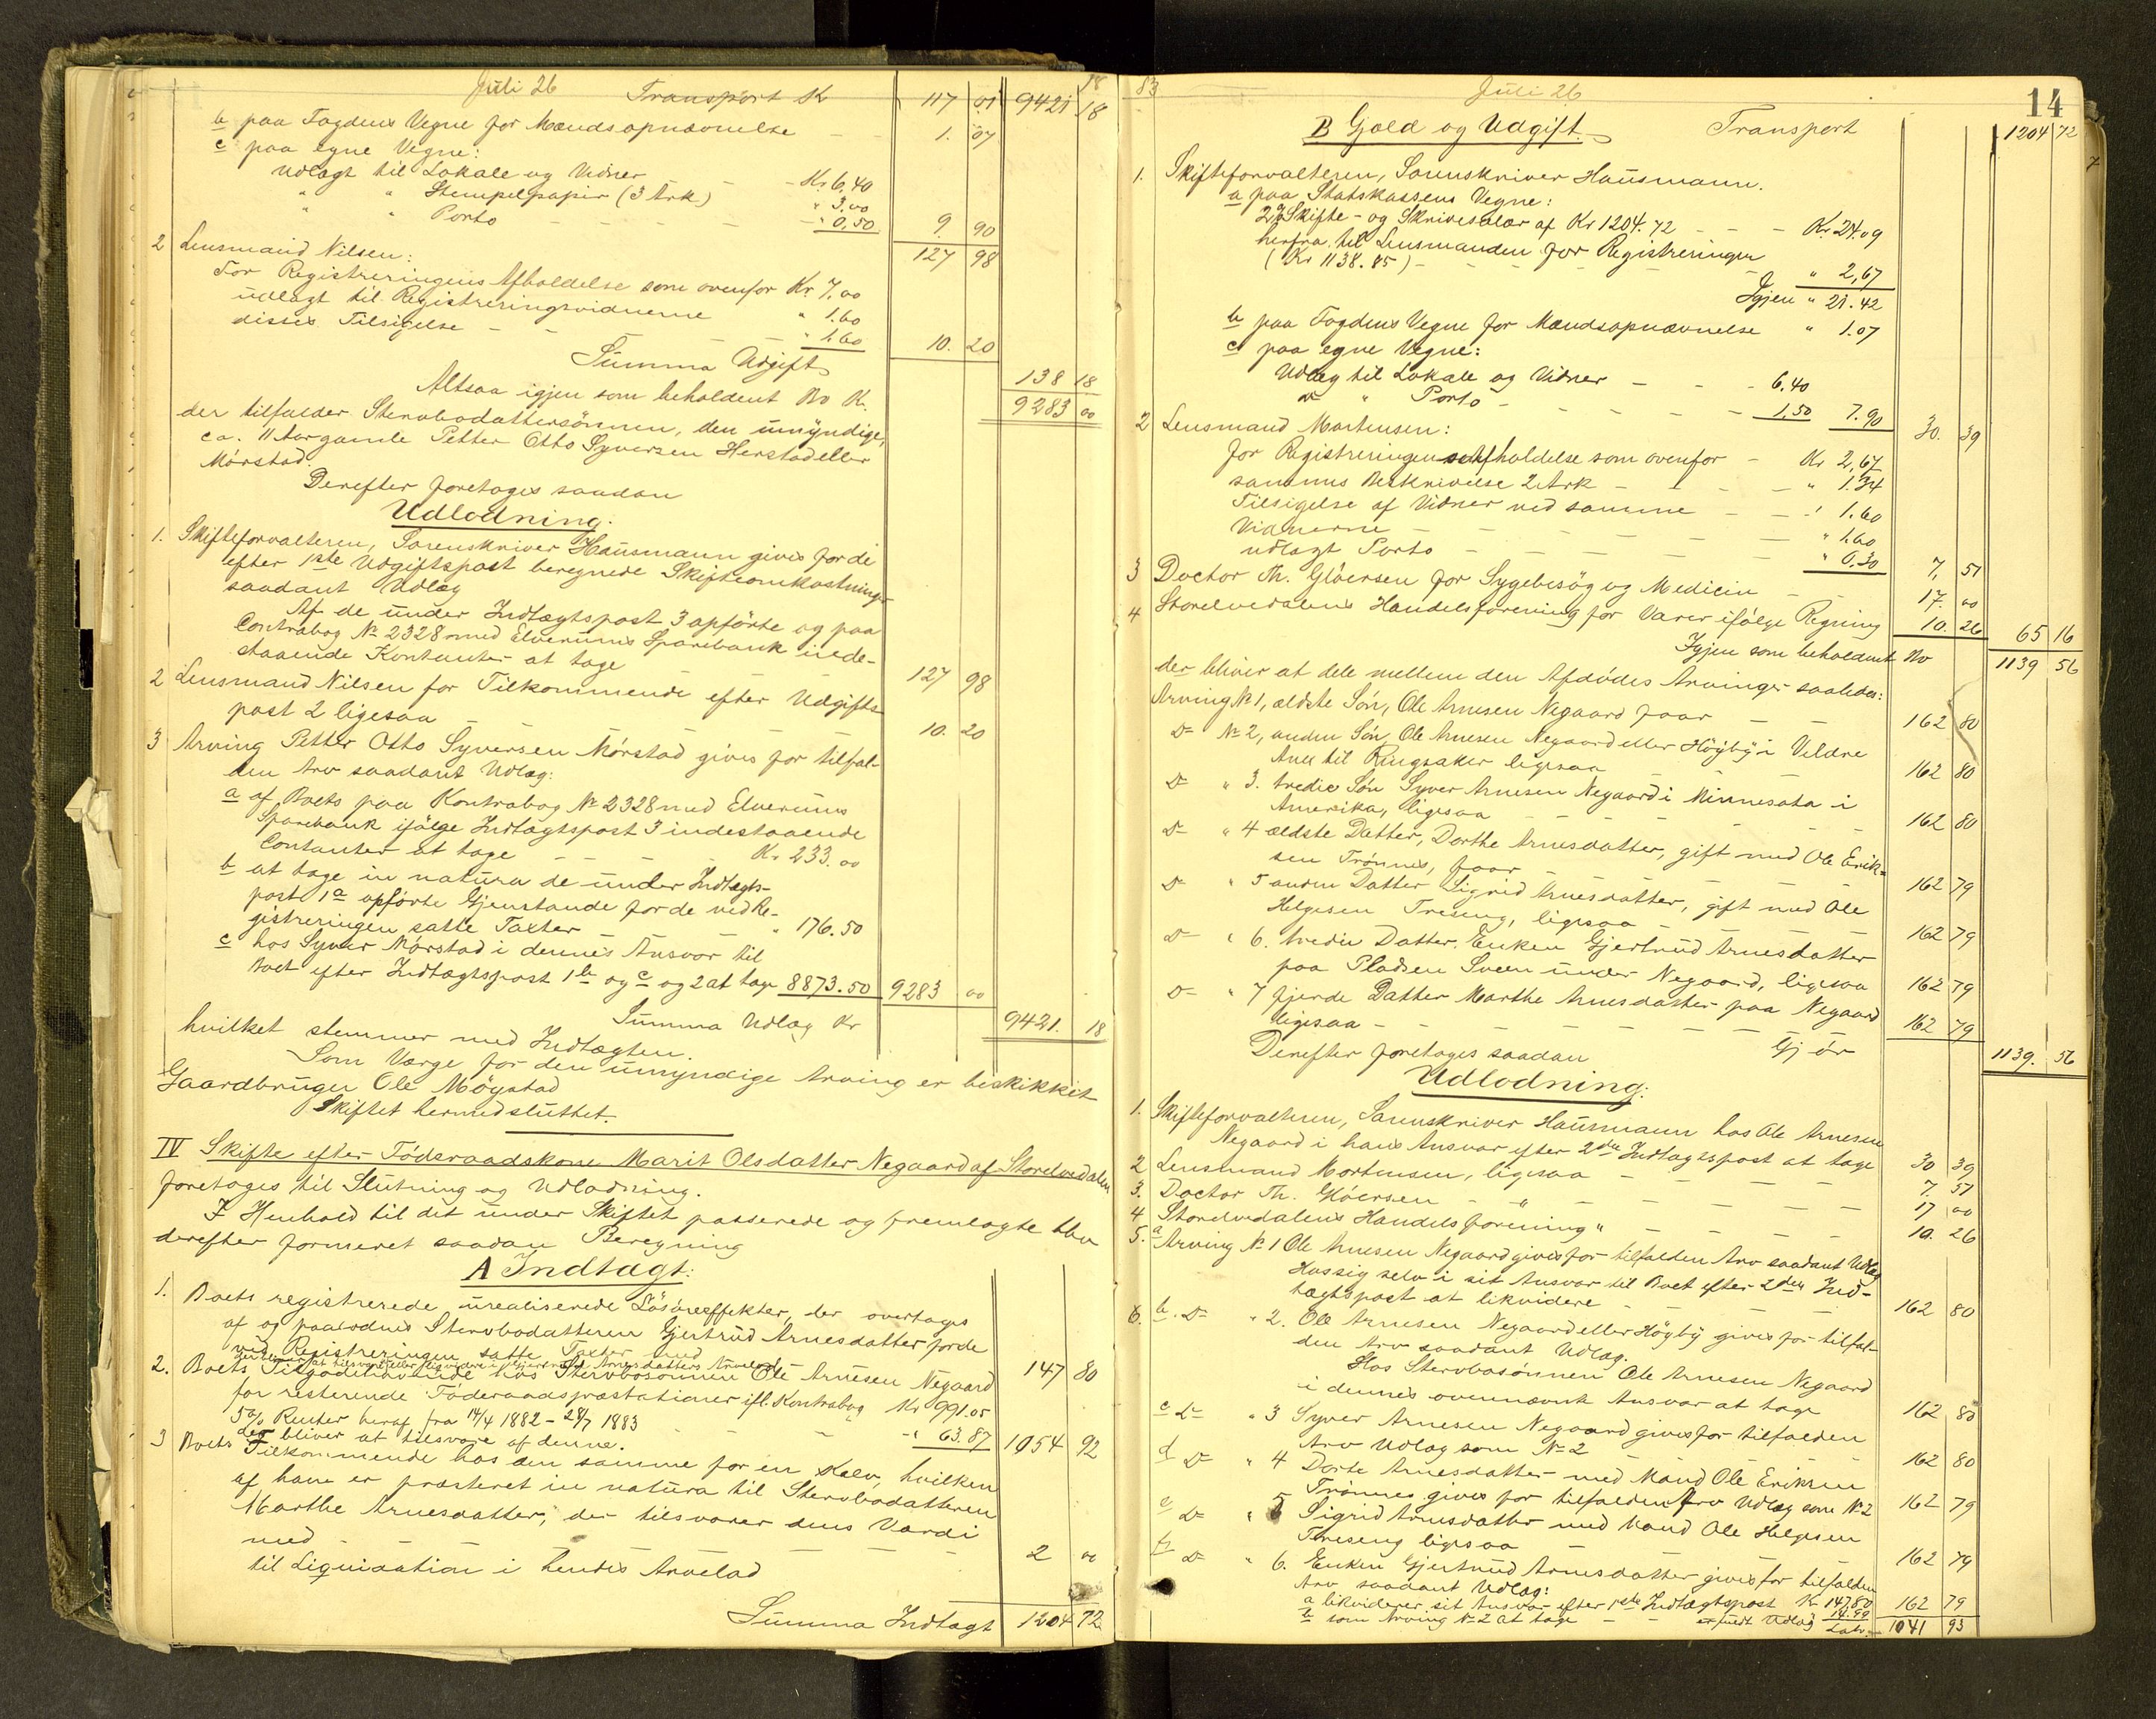 Juli 26
18
Transport Kr 117 01 9421 18
b paa Fogdens Vegne for Mændsopnævnelse - - 1. 07
c paa egne Vegne:
Udlagt til Lokale og Vidner - - Kr 6.40
" " Stempelpapir (3 Ark) " 3,00
" " Porto - - - - " 0,50 9. 90
127 98
2 Lensmand Nilsen:
For Registreringens Afholdelse som ovenfor Kr 7,00
udlagt til Registreringsvidnerne " 1.60
disses Tilsigelse - - - " 1.60 10. 20
Summa Udgift 138 18
Altsaa igjen som beholdent Bo Kr. 9283 00
der tilfalder Stervbodattersönnen, den umyndige,
ca. 11 Aar gamle Petter Otto Syversen Herstad eller
Mörstad.
Derefter foretoges saadan
Udlodning.
1. Skifteforvalteren, Sorenskriver Hausmann gives for de
efter 1ste Udgiftspost beregnede Skifteomkostninger
saadant Udlæg
Af de under Indtægtspost 3 opförte og paa
Contrabog No 2328 med Elverums Sparebank inde-
staaende Kontanter at tage 127 98
2 Lensmand Nilsen for Tilkommende efter Udgifts-
post 2 ligesaa - - - 10. 20
3 Arving Petter Otto Syversen Mörstad gives for tilfal-
den Arv saadant Udlæg:
a af Boets paa Kontrabog No 2328 med Elverums
Sparebank ifölge Indtægtspost 3 indestaaende
Contanter at tage - - - Kr 233.00
b at tage in natura de under Indtægts-
post 1a opförte Gjenstande for de ved Re-
gistreringen satte Taxter " 176.50
c hos Syver Mörstad i dennes Ansvar til
Boet efter Indtægtspost 1b og c og 2 at tage 8873.50 9283 00
Summa Udlæg Kr 9421. 18
hvilket stemmer med Indtægten.
Som Værge for den umyndige Arving er beskikket
Gaardbruger Ole Mögstad
Skiftet hermed sluttet.
IV Skifte efter Föderaadskone Marit Olsdatter Negaard af Storelvedalen
foretoges til Slutning og Udlodning.
I Henhold til det under Skiftet passerede og fremlagte blev
derefter formeret saadan Beregning
A Indtægt:
1. Boets registrerede urealiserede Lösöreeffekter, der overtages
af og paalodnes Stervbodatteren Gjertrud Arnesdatter for de
ved Registreringen satte Taxter med 147 80
2. Boets Tilgodehavende hos Stervbosönnen Ole Arnesen Negaard
for resterende Föderaadspræstationer ifl. Kontrabog Kr 991.05
5% Renter heraf fra 14/4 1882 - 28/7 1883 - " 63.87 1054 92
der bliver at tilsvare af denne.
3 Boets Tilkommende hos den samme for en Kalv, hvilken
af ham er præsteret in natura til Stervbodatteren
Marthe Arnesdatter, der tilsvarer dens Værdi
med - - - - - 2 00
til Liquidation i hendes Arvelod
Summa Indtægt 1204 72
83
Juli 26
14
B Gjæld og Udgift. Transport 1204 72
1. Skifteforvalteren, Sorenskriver Hausmann.
a paa Statskassens Vegne:
2% Skifte- og Skriversalær af Kr 1204.72 - - - Kr 24.09
herfra til Lensmanden for Registreringen
(Kr 1138.85) - - - - - " 2,67
Igjen " 21.42
b paa Fogdens Vegne for Mændsopnævnelse " 1.07
c paa egne Vegne:
Udlæg til Lokale og Vidner - - - 6.40
Do " Porto - - - - 1,50 7.90 30. 39
2 Lensmand Mortensen:
for Registreringens Afholdelse som ovenfor - Kr 2,67
sammes Beskrivelse 2 Ark - - - " 1.34
Tilsigelse af Vidner ved samme - - " 1.60
Vidnerne - - - - " 1.60
udlagt Porto - - - - " 0.30 7, 51
3 Doctor Th. Glöersen for Sygebesög og Medicin - - 17. 00
4 Storelvedalens Handelsforening for Varer ifölge Regning 10. 26 65 16
Igjen som beholdent Bo 1139 56
der bliver at dele mellem den Afdödes Arvinger saaledes:
Arving No 1, ældste Sön, Ole Arnesen Negaard faar - - 162 80
Do No 2, anden Sön, Ole Arnesen Negaard eller Högby i Veldre
Anex til Ringsaker ligesaa 162 80
Do " 3. tredie Sön Syver Arnesen Negaard i Minnesota i
Amerika, ligesaa - - - 162 80
Do " 4 ældste Datter, Dorthe Arnesdatter, gift med Ole Erik-
sen Trönnes, faar - - 162 79
Do " 5 anden Datter Sigrid Arnesdatter, gift med Ole
Helgesen Treseng, ligesaa - 162 79
Do " 6. tredie Datter. Enken Gjertrud Arnesdatter
paa Pladsen Sveen under Negaard, ligesaa 162 79
Do " 7 fjerde Datter Marthe Arnesdatter paa Negaard
ligesaa - - - - - 162 79
Gjör 1139. 56
Derefter foretoges saadan
Udlodning:
1. Skifteforvalteren, Sorenskriver Hausmann hos Ole Arnesen
Negaard i hans Ansvar efter 2den Indtægtspost at tage 30 39
2 Lensmand Mortensen, ligesaa - - - - 7. 51
3. Doctor Th. Glöersen - " - - - 17 00
4 Storelvedalens Handelsforening " - - - 10. 26
5. a Arving No 1 Ole Arnesen Negaard gives for tilfalden Arv saadant Udlæg
Hos sig selv i sit Ansvar til Boet efter 2den Ind-
tægtspost at likvidere - - - 162 80
6. b. Do " 2. Ole Arnesen Negaard eller Högby gives for tilfal-
den Arv saadant Udlæg.
Hos Stervbosönnen Ole Arnesen Negaard
i dennes ovennævnte Ansvar at tage 162 80
c Do " 3 Syver Arnesen Negaard gives for tilfalden
Arv Udlæg som No 2 162 80
d Do " 4 Dorte Arnesdatter med Mand Ole Eriksen
Trönnes gives for tilfalden Arv Udlæg som No 2 162 79
e Do " 5 Sigrid Arnesdatter med Mand Ole Helgesen
Treseng ligesaa - - - 162 79
f Do " 6. Enken Gjertrud Arnesdatter gives for tilfalden
Arv saadant Udlæg:
a likviderer sit Ansvar efter 1ste Indtægtspost Kr 147,80
b som Arving No 2 at tage - - 14.99 162 79
Udlæg Latr. 1041 93